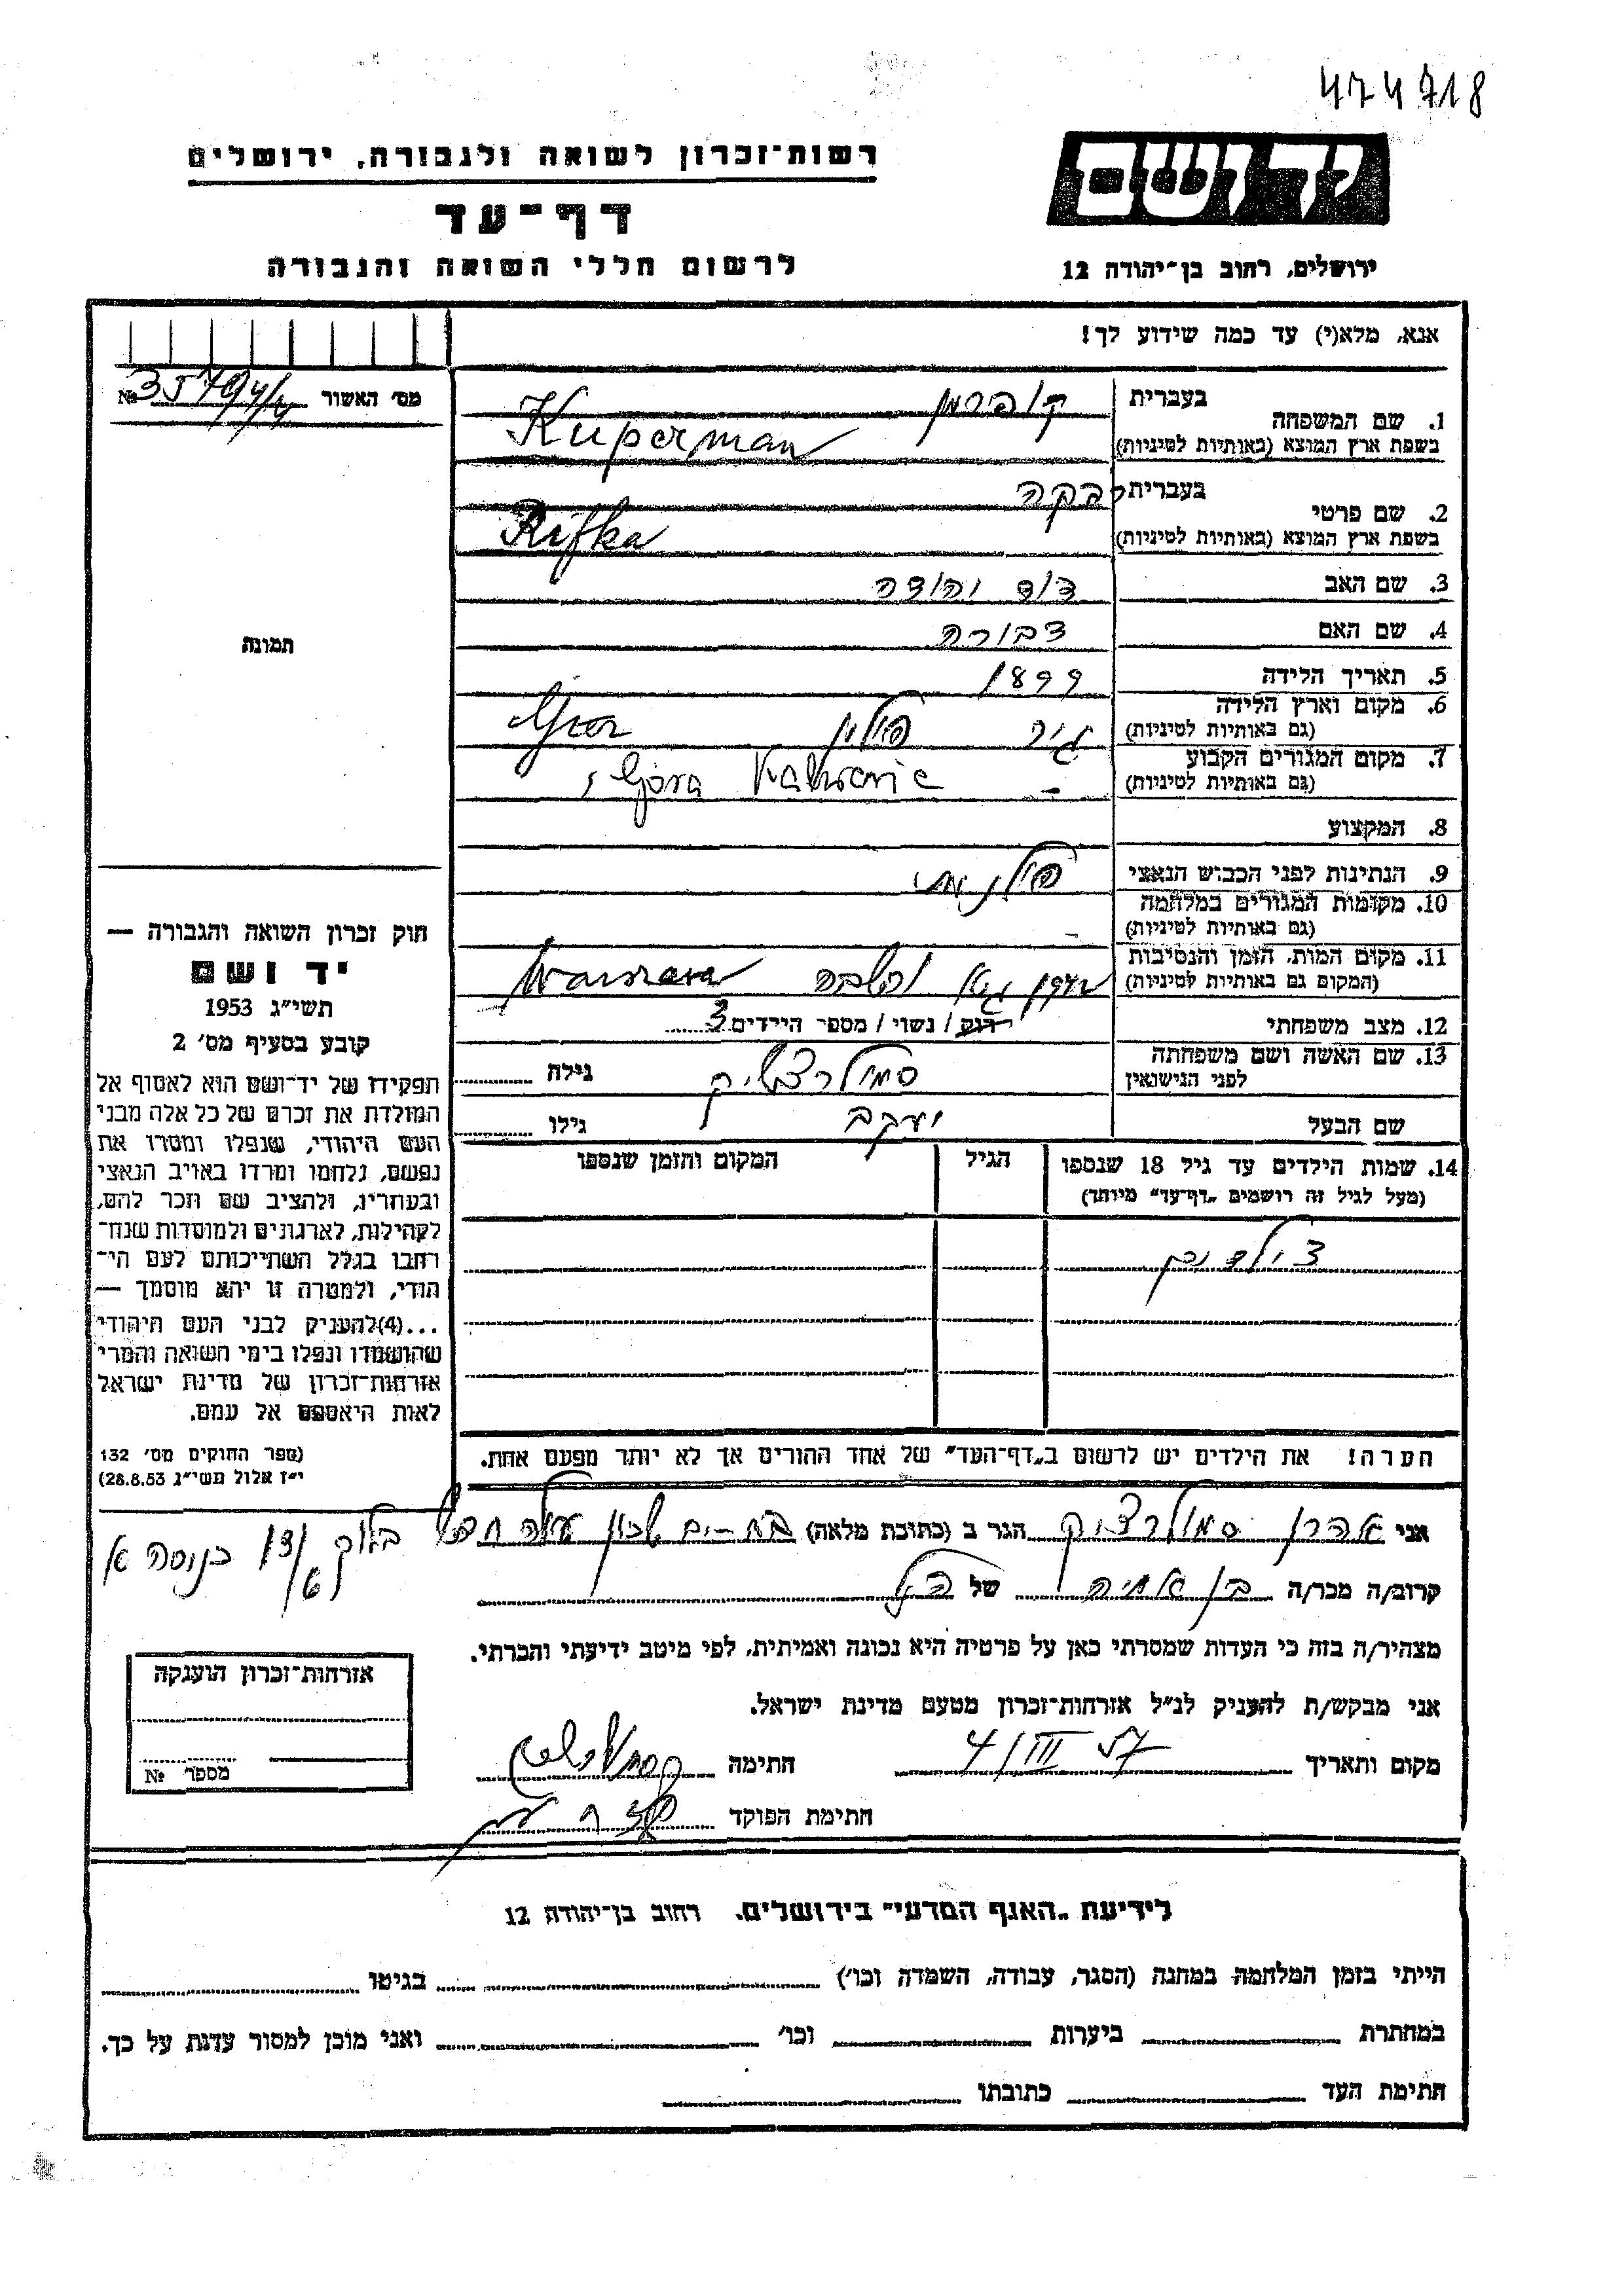 474718
רשות־זכרון לשואה ולגבורה, ירושלים
יד ושם
דף־עד
לרשום חללי השואה והגבורה
ירושלים, רחוב בן־יהודה 12
אנא, מלא(י) עד כמה שידוע לך!
מס' האשור №
1. שם המשפחה
בעברית קופרמן
בשפת ארץ המוצא (באותיות לטיניות) Kuperman
2. שם פרטי
בעברית רבקה
בשפת ארץ המוצא (באותיות לטיניות) Rifka
3. שם האב דוד יהודה
4. שם האם דבורה
5. תאריך הלידה 1899
6. מקום וארץ הלידה
(גם באותיות לטיניות) גיר פולין
7. מקום המגורים הקבוע
(גם באותיות לטיניות) - Góra Kalwarie
8. המקצוע
9. הנתינות לפני הכבוש הנאצי פולנית
10. מקומות המגורים במלחמה
(גם באותיות לטיניות) -
11. מקום המות, הזמן והנסיבות
(המקום גם באותיות לטיניות) Warszawa
12. מצב משפחתי רווק / נשוי / מספר הילדים 3
13. שם האשה ושם משפחתה
לפני הנישואין סמולרצ'יק גילה
שם הבעל יעקב גילו
14. שמות הילדים עד גיל 18 שנספו הגיל המקום והזמן שנספו
(מעל לגיל זה רושמים „דף־עד" מיוחד)
הערה! את הילדים יש לרשום ב„דף־העד" של אחד ההורים אך לא יותר מפעם אחת.
תמונה
חוק זכרון השואה והגבורה —
יד ושם
תשי"ג 1953
קובע בסעיף מס' 2
תפקידו של יד־ושם הוא לאסוף אל
המולדת את זכרם של כל אלה מבני
העם היהודי, שנפלו ומסרו את
נפשם, נלחמו ומרדו באויב הנאצי
ובעוזריו, ולהציב שם וזכר להם,
לקהילות, לארגונים ולמוסדות שנח־
רבו בגלל השתייכותם לעם הי־
הודי, ולמטרה זו יהא מוסמך —
...(4)להעניק לבני העם היהודי
שהושמדו ונפלו בימי השואה והמרי
אזרחות־זכרון של מדינת ישראל
לאות היאספם אל עמם.
(ספר החוקים מס' 132
י"ז אלול תשי"ג 28.8.53)
אני אהרן סמולרצ'יק הגר ב (כתובת מלאה) בת-ים שכון כניסה א
קרוב/ה מכר/ה בן אחיה של הנ"ל
מצהיר/ה בזה כי העדות שמסרתי כאן על פרטיה היא נכונה ואמיתית, לפי מיטב ידיעתי והכרתי.
אני מבקש/ת להעניק לנ"ל אזרחות־זכרון מטעם מדינת ישראל.
מקום ותאריך 4/III 57 חתימה
חתימת הפוקד
אזרחות־זכרון הוענקה
מספר №
לידיעת „האגף המדעי" בירושלים. רחוב בן־יהודה 12
הייתי בזמן המלחמה במחנה (הסגר, עבודה, השמדה וכו') בגיטו
במחתרת ביערות וכו' ואני מוכן למסור עדות על כך.
חתימת העד כתובתו